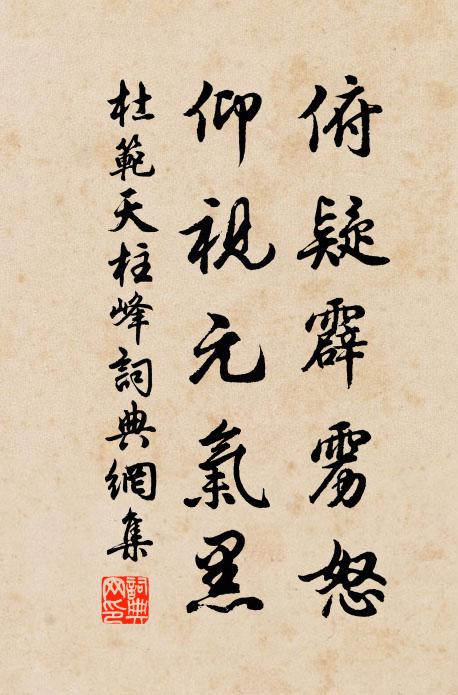 俯疑霹雳怒
仰視元氣黑
杜範天柱峰詞典網集
詞典
网印